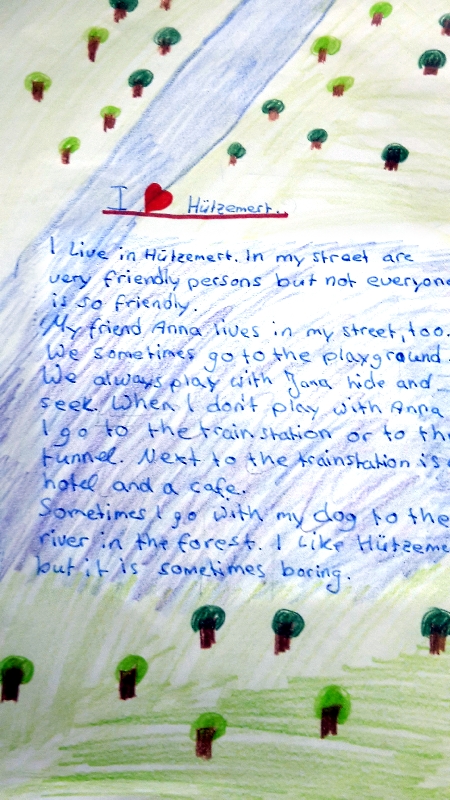 I ❤ Hützemert.
I live in Hützemert. In my street are
very friendly persons but not everyone
is so friendly.
My friend Anna lives in my street, too.
We sometimes go to the playground.
We always play with Jana hide and
seek. When I don't play with Anna
I go to the trainstation or to th
tunnel. Next to the trainstation is
hotel and a cafe.
Sometimes I go with my dog to the
river in the forest. I like Hützeme
but it is sometimes boring.